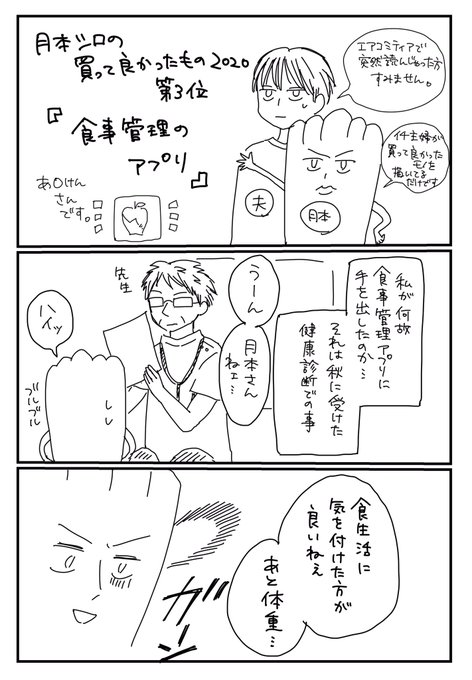 月本シロの
買って良かったもの2020
第3位
『食事管理の
アプリ』
あ〇けん
さん
です。
エアコミティアで
突然読んじゃった方
すみません。
イチ主婦が
買って良かった
モノを
描いてる
だけです
夫
月本
私が何故
食事管理アプリに
手を出したのか…
それは秋に受けた
健康診断での事
うーん
月本さん
ねェ…
先生
ハイッ
ブルブル
食生活に
気を付けた方が
良いねぇ
あと体重…
ガーン